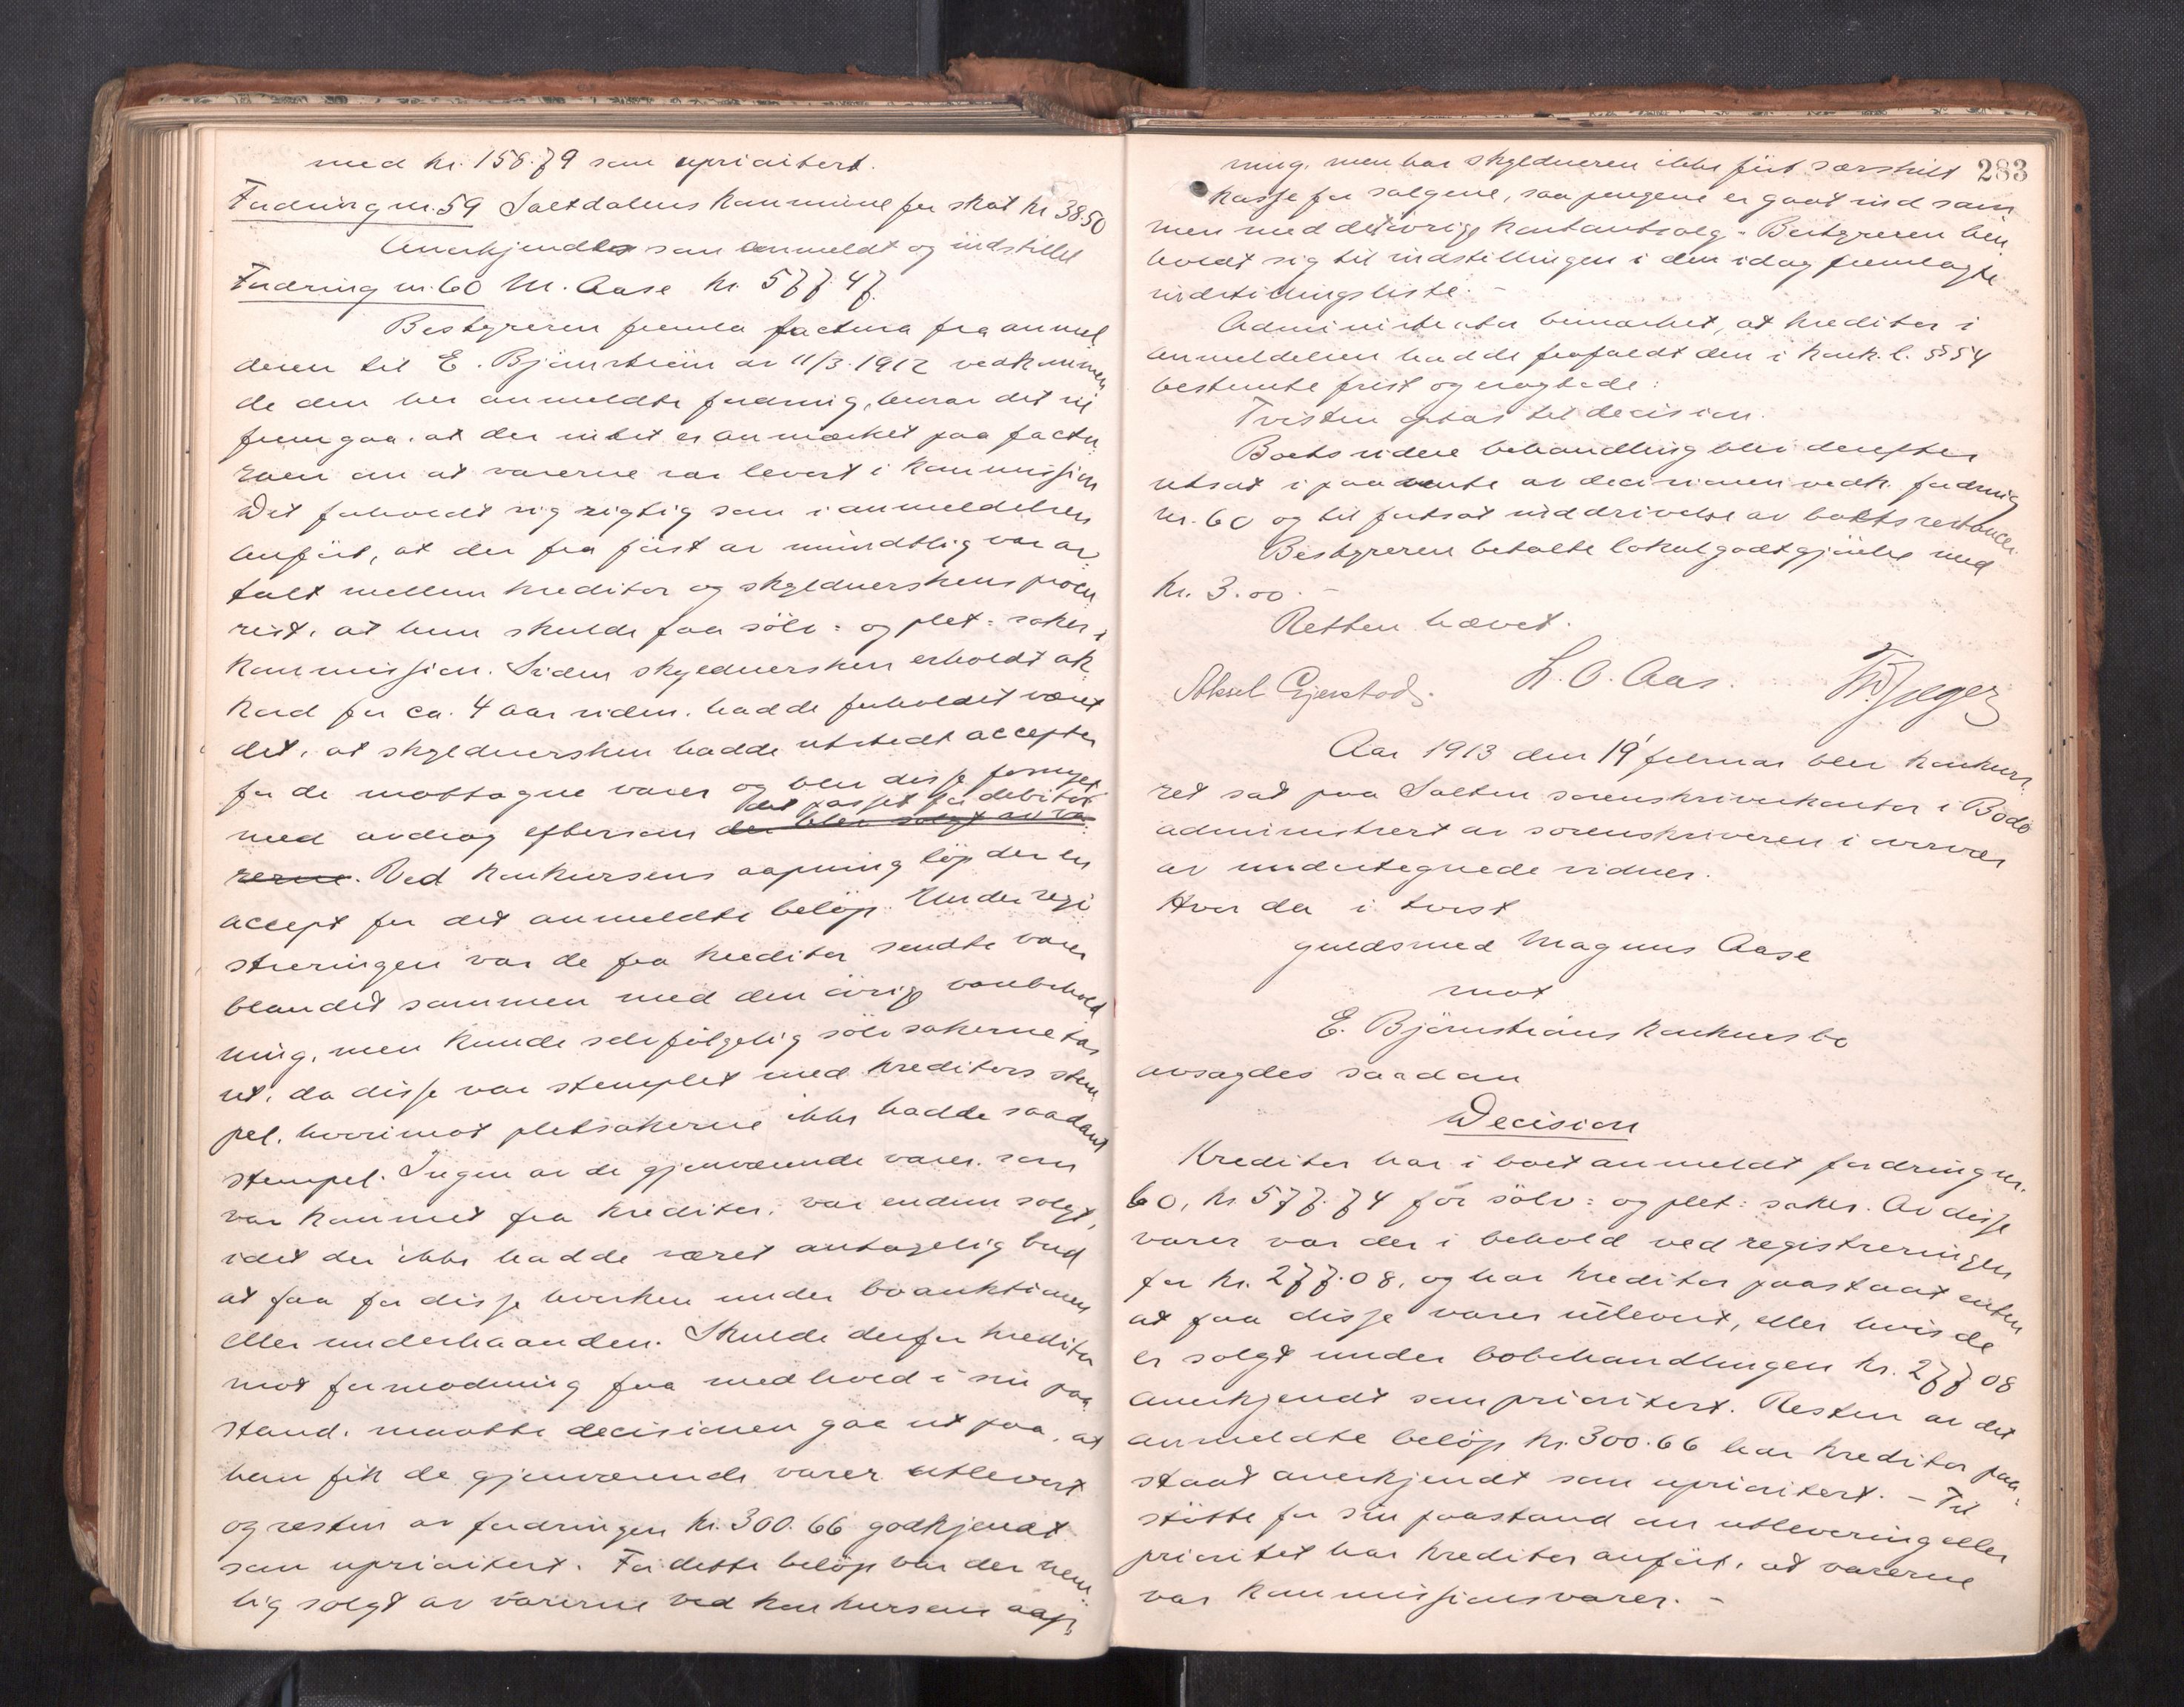 med kr. 158.79 som upriaitert.
Fodring nr. 59 Saltdalens kommune for skat kr 38.50
Anerkjendtes som anmeldt og indstillet
Fodring nr. 60 M. Aase kr. 577.47.
Bestyreren fremla factura fra anmel
deren til E. Björnstrein av 11/3. 1912 vedkommen
de den her anmeldte fordring, hvorav det vil
fremgaa, at der intet er anmerket paa factu
raen om at varerne var levert i kommission
Det forholdt sig rigtig som i anmeldelsen
anfört, at der fra först av mündtlig var av
talt mellem kreditor og skyldnerskens procu
rist, at hun skulde faa sölv- og plet-saker i
kommission. Siden skyldnersken erholdt ak
kord for ca. 4 aar siden, hadde forholdet været
det, at skyldnersken hadde utstedt accepter
for de mottagne varer og blev disse fornyet
det passet for debitor
med avdrag eftersom der blev solgt av va
rerne. Ved konkursens aapning löp der en
accept for det anmeldte belöp. Under regi
streringen var de fra kreditor sendte varer
blandet sammen med den övrige varebehold
ning, men kunde selvfölgelig sölvsakerne tas
ut, da disse var stemplet med kreditors stem
pel, hvorimot pletsakerne ikke hadde saadant
stempel. Ingen av de gjenværende varer, som
var kommet fra kreditor, var endnu solgt,
idet der ikke hadde været antagelig bud
at faa for disse hverken under boauktionen
eller underhaanden. Skulde derfor kreditor
mot formodning faa medhold i sin paa
stand, maatte decisionen gaa ut paa, at
han fik de gjenværende varer utlevert
og resten av fordringen kr. 300.66 godkjendt
som upriaitert. For dette belöp var der nem
lig solgt av varerne ved konkursens aap
283
ning, men har skyldneren ikke fört særskilt
kasse for salgene, saa pengene er gaat ind sam
men med det övrige kontantsalg. - Bestyreren hen
holdt sig til indstillingen i den idag fremlagte
indstillingsliste. -
Administrator bemerket, at kreditor i
anmeldelsen hadde frafaldt den i konk. l. § 54
bestemte frist og eragtede:
Tvisten optas til decision.
Boets videre behandling blev derefter
utsat i paavente av decisionen vedk. fordring
nr. 60 og til fortsat inddrivelse av boets restancer.
Bestyreren betalte lokalgodtgjörelse med
kr. 3.00. -
Retten hævet.
Aksel Gjerstad. L. O. Aas. Th. Jæger
Aar 1913 den 19' februar blev konkurs
ret sat paa Salten sorenskriverkontor i Bodö
administrert av sorenskriveren i overvær
av undertegnede vidner.
Hvor da i tvist
guldsmed Magnus Aase
mot
E. Björnstrøms konkursbo
avsagdes saadan
Decision
Kreditor har i boet anmeldt fordring nr.
60, kr 577.74 for sölv- og plet-saker. Av disse
varer var der i behold ved registreringen
for kr. 277.08, og har kreditor paastaat enten
at faa disse varer utlevert, eller hvis de
er solgt under bobehandlingen kr. 277.08
anerkjendt som prioritert. Resten av det
anmeldte belöp kr. 300.66 har kreditor paa-
staat anerkjendt som upriaritert. - Til
stötte for sin paastand om utlevering eller
prioritet har kreditor anfört, at varerne
var kommissionsvarer. -